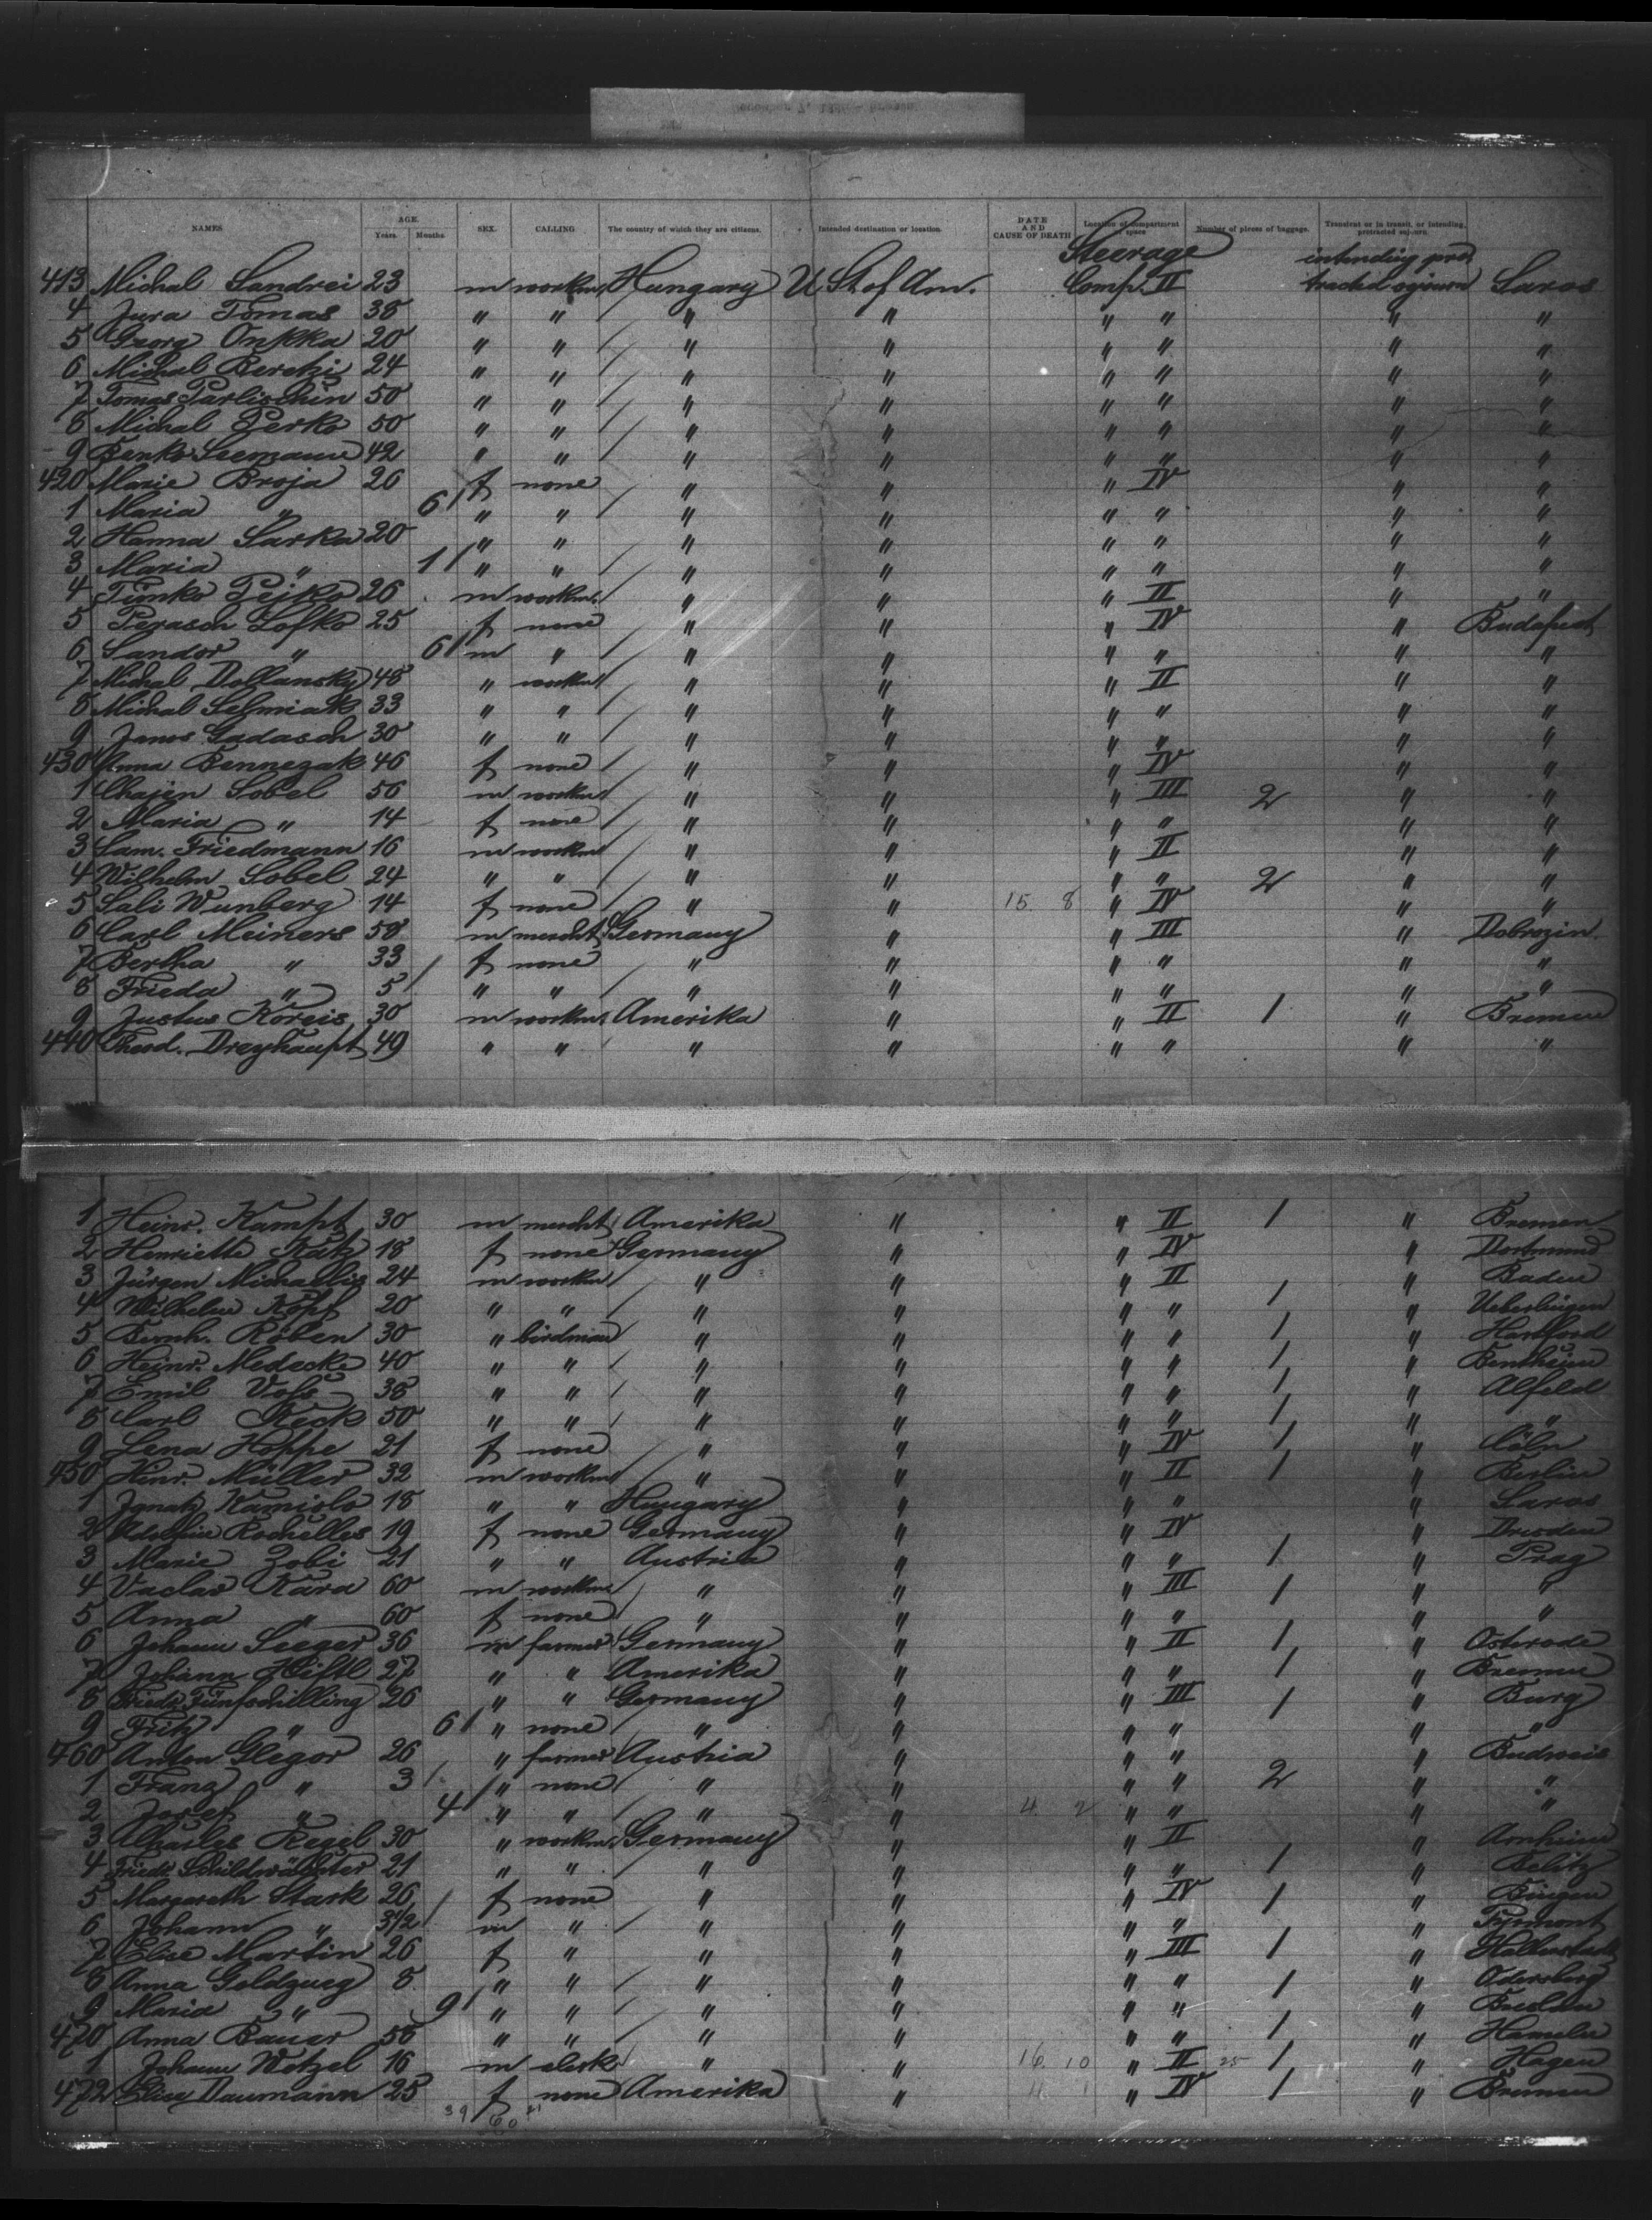 NAMES AGE. Years. Months. SEX. CALLING. The country of which they are citizens. Intended destination or location. DATE AND CAUSE OF DEATH Location of compartment or space Number of pieces of baggage. Transient or in transit, or intending protracted sojourn.
Steerage intending pro
413 Michal Sandrei 23 m workm. Hungary U St of Am. Comp. II tracted sojourn Saros
4 Jura Tomas 38 " " " " " " " "
5 Georg Onkka 20 " " " " " " " "
6 Michal Beretzi 24 " " " " " " " "
7 Tomas Parlischin 50 " " " " " " " "
8 Michal Perko 50 " " " " " " " "
9 Benko Seemann 42 " " " " " " " "
420 Marie Broja 26 f none " " " IV " "
1 Maria " 6 " " " " " " " "
2 Hanna Sarka 20 " " " " " " " "
3 Maria " 1 " " " " " " " "
4 Timko Pejko 26 m workm. " " " II " "
5 Perasch Zofko 25 f none " " " IV " Budapest
6 Sandor " 6 m " " " " " " "
7 Michal Dollansky 48 " workm " " " II " "
8 Michal Selmiak 33 " " " " " " " "
9 Janos Gadasch 30 " " " " " " " "
430 Anna Bennezak 46 f none " " " IV " "
1 Chajen Sobel 56 m workm " " " III 2 " "
2 Maria " 14 f none " " " " " "
3 Sam. Friedmann 16 m workm " " " II " "
4 Wilhelm Sobel 24 " " " " " " 2 " "
5 Sali Wunberg 14 f none " " 15 8 " IV " "
6 Carl Meiners 58 m mercht Germany " " III " Dobrozin
7 Bertha " 33 f none " " " " " "
8 Frieda " 5 " " " " " " " "
9 Justus Koreis 30 m workm. Amerika " " II 1 " Bremen
440 Theod. Dreyhaupt 49 " " " " " " " "
1 Heinr. Kampt 30 m mercht Amerika " " II 1 " Bremen
2 Henriette Katz 18 f none Germany " " IV " Dortmund
3 Jürgen Michaelis 24 m workm " " " II " Baden
4 Wilhelm Kopf 20 " " " " " " 1 " Ueberlingen
5 Bernh. Röben 30 " birdman " " " " 1 " Hartford
6 Heinr. Medecke 40 " " " " " " 1 " Bentheim
7 Emil Voss 38 " " " " " " 1 " Alfeld
8 Carl Reck 50 " " " " " " 1 " "
9 Lena Hoppe 21 f none " " " IV 1 " Cöln
450 Heinr. Müller 32 m workm " " " II 1 " Berlin
1 Ignatz Kamiolo 18 " " Hungary " " " " Saros
2 Rochelles 19 f none Germany " " IV " Dresden
3 Marie Zobi 21 " " Austria " " " 1 " Prag
4 Vaclav Kara 60 m workm " " " III 1 " "
5 Anna " 60 f none " " " " " "
6 Johann Seeger 36 m farmer Germany " " II 1 " Osterode
7 Johann Heiftl 27 " " Amerika " " " 1 " Bremen
8 Friedr. Fünfschilling 26 " " Germany " " III 1 " Burg
9 Fritz " 6 " none " " " " " "
460 Anton Glegor 26 " farmer Austria " " " " Budweis
1 Franz " 3 " none " " " " 2 " "
2 Josef " 4 " " " " 4 2 " " " "
3 Charles Kegel 30 " workm. Germany " " II " Arnheim
4 Friedr. Schildwächter 21 " " " " " " 1 " Belitz
5 Margareth Stark 26 f none " " " IV 1 " Bingen
6 Johann " 3½ m " " " " " " Pyrmont
7 Elise Martin 26 f " " " " III 1 " Halberstadt
8 Anna Goldzweg 8 " " " " " " 1 " Odersberg
9 Maria " 9 " " " " " " " Breslau
470 Anna Bauer 56 " " " " " " 1 " Hameln
1 Johann Wetzel 16 m clerk " " 16 10 " II 25 1 " Hagen
472 Elise Daumann 25 f none Amerika " " IV 1 " Bremen
39 60 21